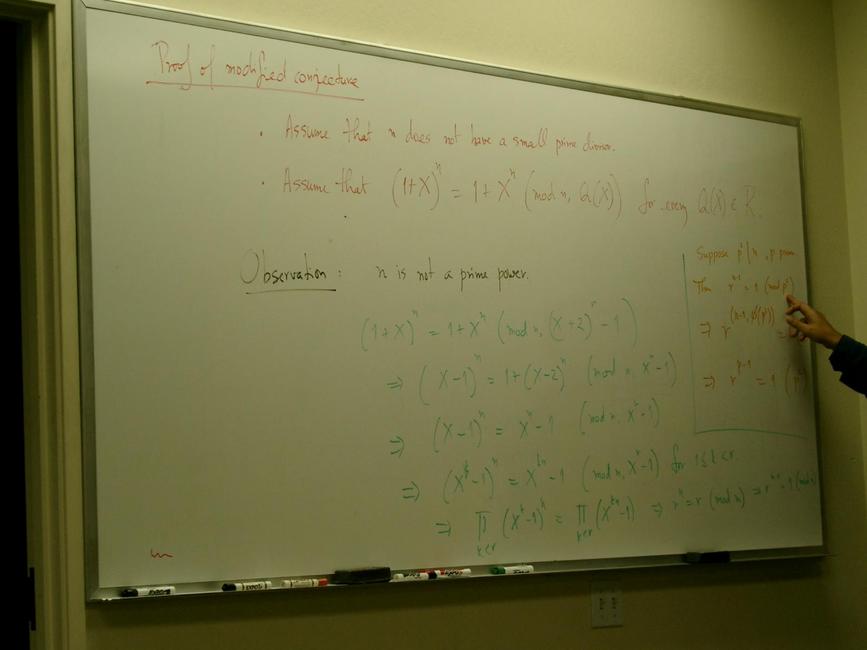 Proof of modified conjecture
. Assume that n does not have a small prime divisor.
. Assume that (1+X)^n = 1 + X^n (mod n, Q(X)) for every Q(X) ∈ R.
Observation : n is not a prime power.
(1+X)^n = 1 + X^n (mod n, (X+2)^r - 1)
⇒ (X-1)^n = 1 + (X-2)^n (mod n, X^r - 1)
⇒ (X-1)^n = X^n - 1 (mod n, X^r - 1)
⇒ (X^k - 1)^n = X^{kn} - 1 (mod n, X^r - 1) for 1 ≤ k < r.
⇒ ∏_{k<r} (X^k - 1)^n = ∏_{k<r} (X^{kn} - 1) ⇒ r^n = r (mod n) ⇒ r^{n-1} = 1 (mod n)
Suppose p² | n, p prime
Then r^{n-1} = 1 (mod p²)
⇒ r^{(n-1, φ(p²))} =
⇒ r^{p-1} = 1 (p²)